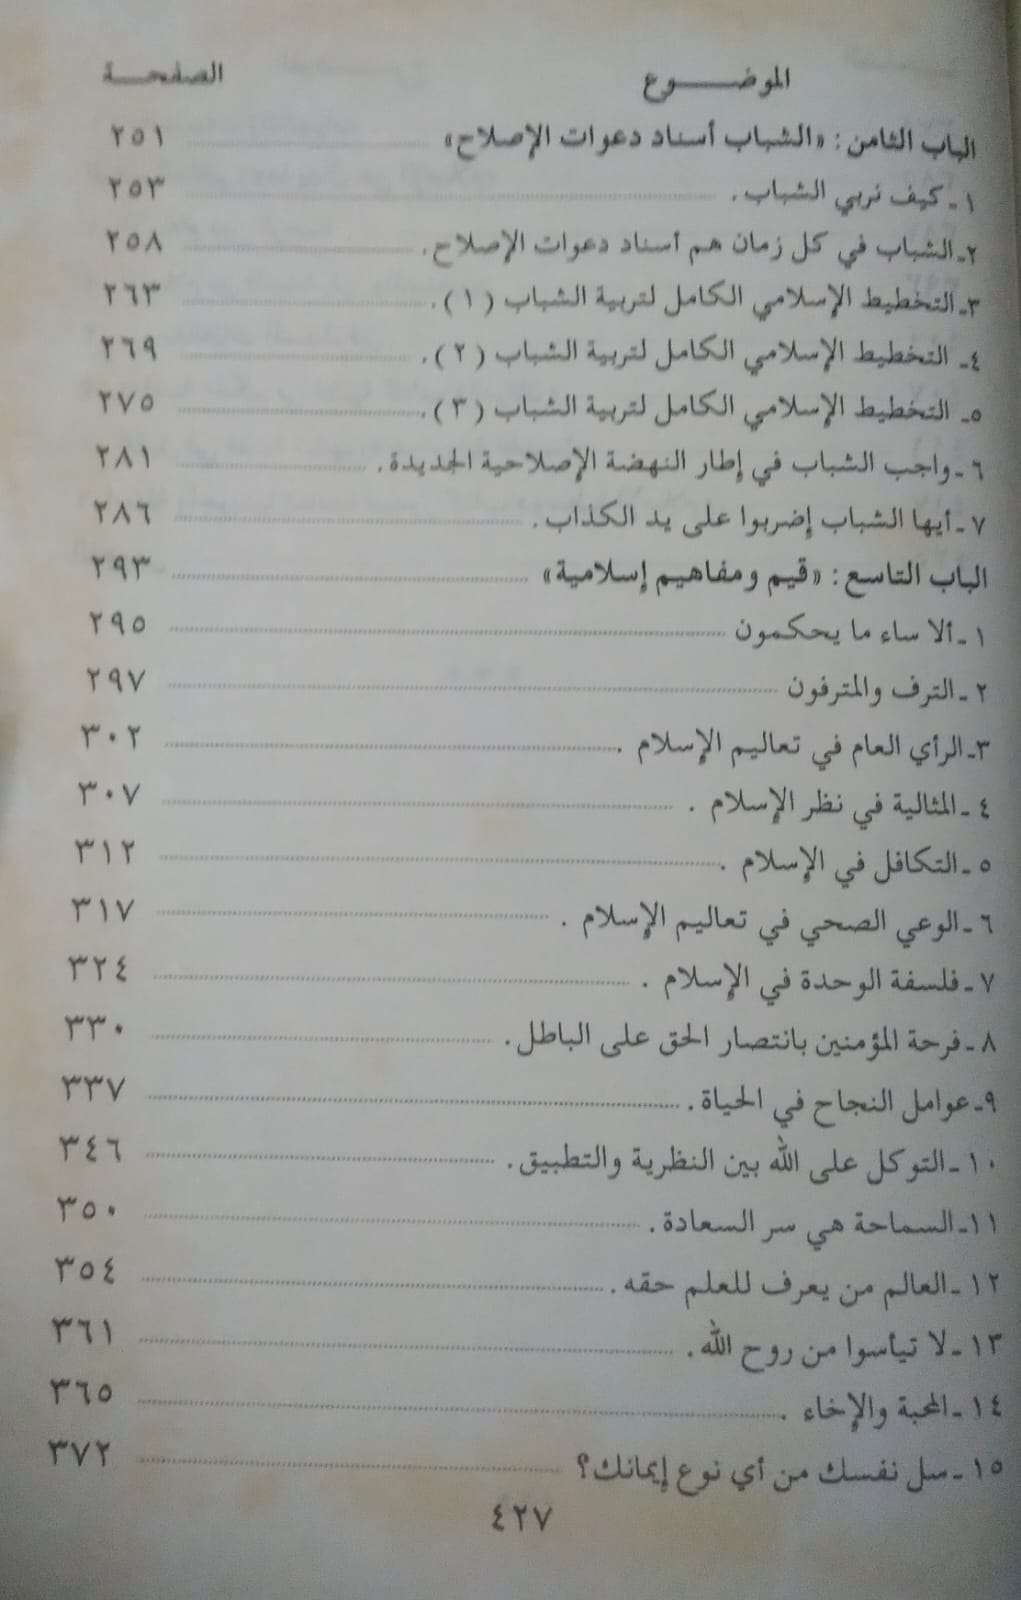 الموضـــــوع الصفحـــة
الباب الثامن: «الشباب أسناد دعوات الإصلاح» ٢٥١
١ ـ كيف نربي الشباب. ٢٥٣
٢ـ الشباب في كل زمان هم أسناد دعوات الإصلاح. ٢٥٨
٣ـ التخطيط الإسلامي الكامل لتربية الشباب (١). ٢٦٣
٤ـ التخطيط الإسلامي الكامل لتربية الشباب (٢). ٢٦٩
٥ـ التخطيط الإسلامي الكامل لتربية الشباب (٣). ٢٧٥
٦ ـ واجب الشباب في إطار النهضة الإصلاحية الجديدة. ٢٨١
٧ ـ أيها الشباب إضربوا على يد الكذاب. ٢٨٦
الباب التاسع: «قيم ومفاهيم إسلامية» ٢٩٣
١ ـ ألا ساء ما يحكمون ٢٩٥
٢ ـ الترف والمترفون ٢٩٧
٣ـ الرأي العام في تعاليم الإسلام . ٣٠٢
٤ ـ المثالية في نظر الإسلام . ٣٠٧
٥ ـ التكافل في الإسلام . ٣١٢
٦ ـ الوعي الصحي في تعاليم الإسلام . ٣١٧
٧ ـ فلسفة الوحدة في الإسلام . ٣٢٤
٨ ـ فرحة المؤمنين بانتصار الحق على الباطل. ٣٣٠
٩ـ عوامل النجاح في الحياة. ٣٣٧
١٠ ـ التوكل على الله بين النظرية والتطبيق. ٣٤٦
١١ـ السماحة هي سر السعادة. ٣٥٠
١٢ ـ العالم من يعرف للعلم حقه. ٣٥٤
١٣ ـ لا تيأسوا من روح الله. ٣٦١
١٤ ـ المحبة والإخاء . ٣٦٥
١٥ ـ سل نفسك من أي نوع إيمانك؟ ٣٧٢
٤٢٧